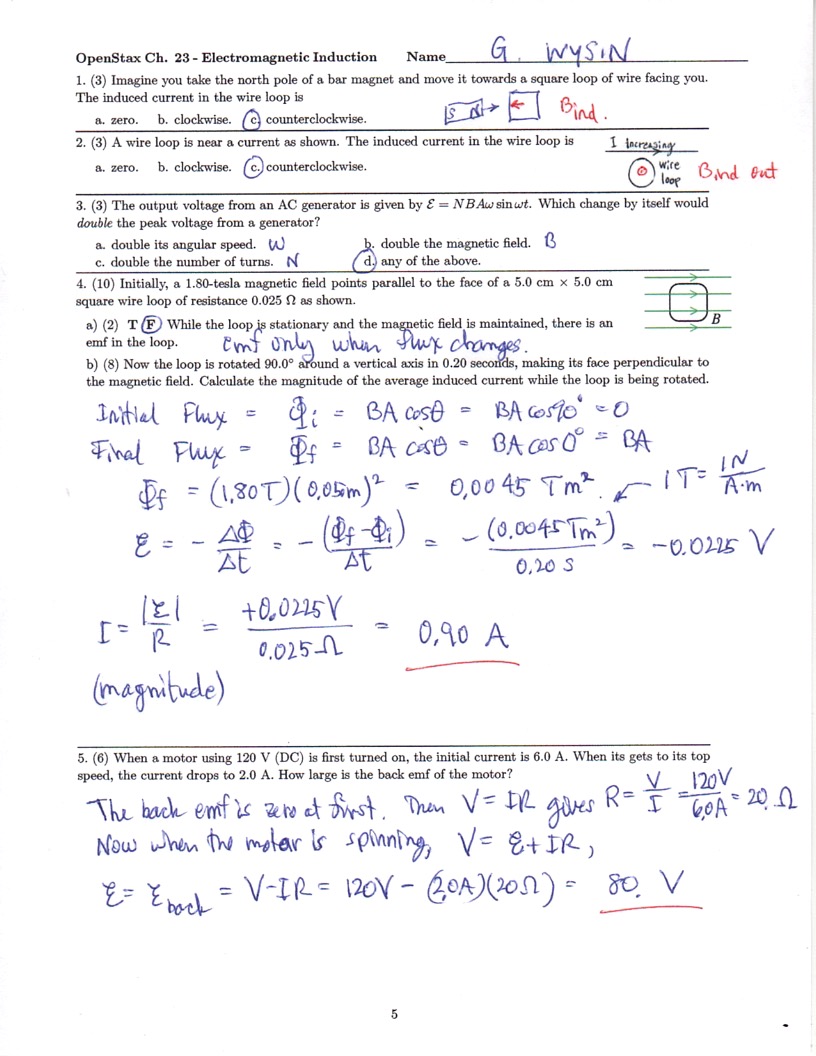 OpenStax Ch. 23 - Electromagnetic Induction Name G. WYSIN
1. (3) Imagine you take the north pole of a bar magnet and move it towards a square loop of wire facing you.
The induced current in the wire loop is
a. zero. b. clockwise. c. counterclockwise. S N Bind.
2. (3) A wire loop is near a current as shown. The induced current in the wire loop is I increasing
a. zero. b. clockwise. c. counterclockwise. wire loop Bind out
3. (3) The output voltage from an AC generator is given by ℰ = NBAω sin ωt. Which change by itself would
double the peak voltage from a generator?
a. double its angular speed. ω b. double the magnetic field. B
c. double the number of turns. N d. any of the above.
4. (10) Initially, a 1.80-tesla magnetic field points parallel to the face of a 5.0 cm × 5.0 cm
square wire loop of resistance 0.025 Ω as shown.
B
a) (2) T F While the loop is stationary and the magnetic field is maintained, there is an
emf in the loop. Emf only when flux changes.
b) (8) Now the loop is rotated 90.0° around a vertical axis in 0.20 seconds, making its face perpendicular to
the magnetic field. Calculate the magnitude of the average induced current while the loop is being rotated.
Initial Flux = Φi = BA cosθ = BA cos90° = 0
Final Flux = Φf = BA cosθ = BA cos0° = BA
Φf = (1.80T)(0.05m)² = 0.0045 Tm². ← 1T = 1N/A·m
ℰ = - ΔΦ/Δt = - (Φf - Φi)/Δt = - (0.0045Tm²)/0.20 s = -0.0225 V
I = |ℰ|/R = +0.0225V/0.025Ω = 0.90 A
(magnitude)
5. (6) When a motor using 120 V (DC) is first turned on, the initial current is 6.0 A. When its gets to its top
speed, the current drops to 2.0 A. How large is the back emf of the motor?
The back emf is zero at first. Then V = IR gives R = V/I = 120V/6.0A = 20. Ω
Now when the motor is spinning, V = ℰ + IR,
ℰ = ℰback = V - IR = 120V - (2.0A)(20Ω) = 80. V
5